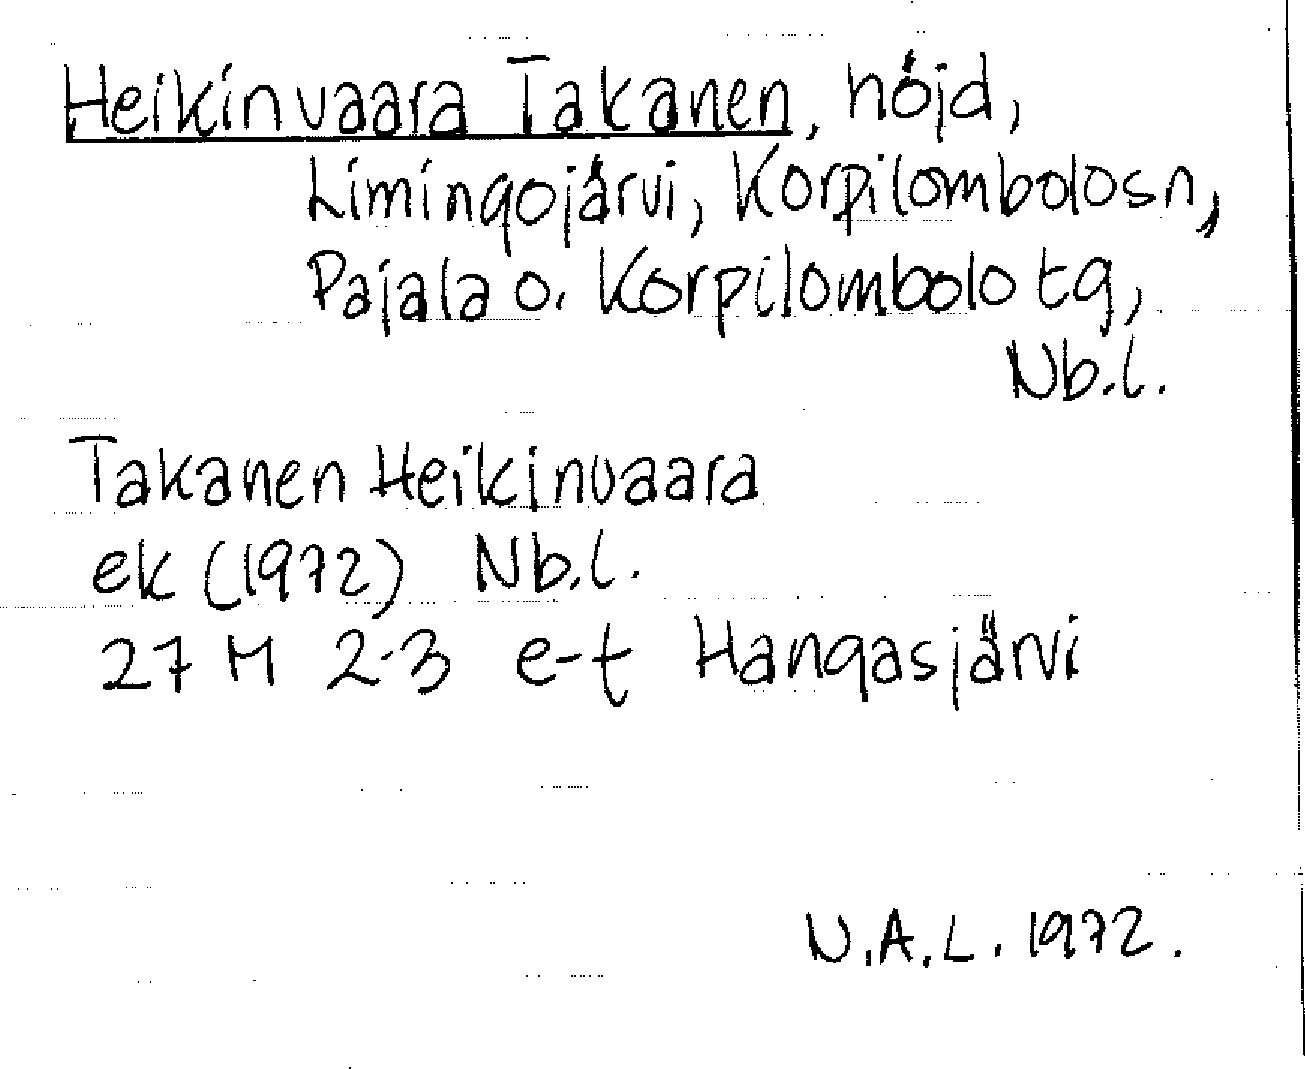 Heikinvaara Takanen, höjd,
Limingojärvi, Korpilombolosn,
Pajala o. Korpilombolo tg,
Nb.l.
Takanen Heikinvaara
ek (1972) Nb.l.
27 M 2-3 e-t Hangasjärvi
N.A.L. 1972.